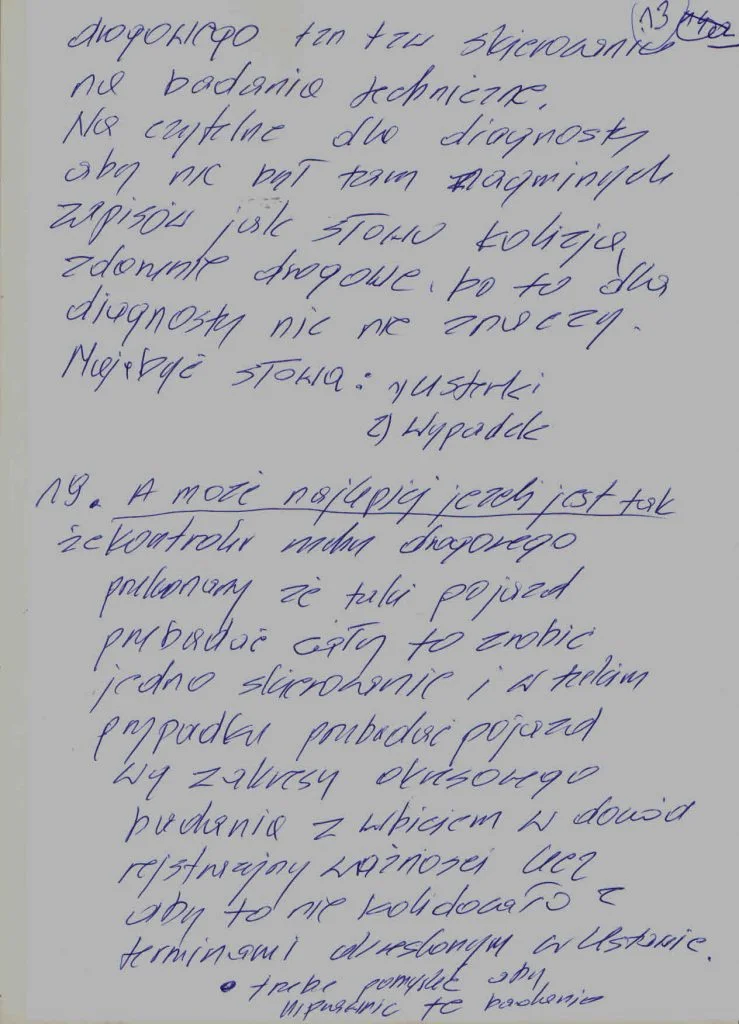 13
drogowego tzn tzw skierowanie
na badania techniczne.
Na czytelne dla diagnosty
aby nie był tam nagminych
zapisów jak słowo kolizja,
zdarznie drogowe, bo to dla
diagnosty nic nie znaczy.
Mają być słowa: 1) Usterki
2) Wypadek
19. A może najlepiej jeżeli jest tak
że kontroler ruchu drogowego
przekonany że taki pojazd
przebadać cały to zrobić
jedno skierowanie i w takim
przypadku przebadać pojazd
wg zakresy okresowego
badania z wbiciem w dowód
rejstracyjny ważności lecz
aby to nie kolidowało z
terminami określonym w Ustawie.
• trzeba pomyśleć aby
te badania